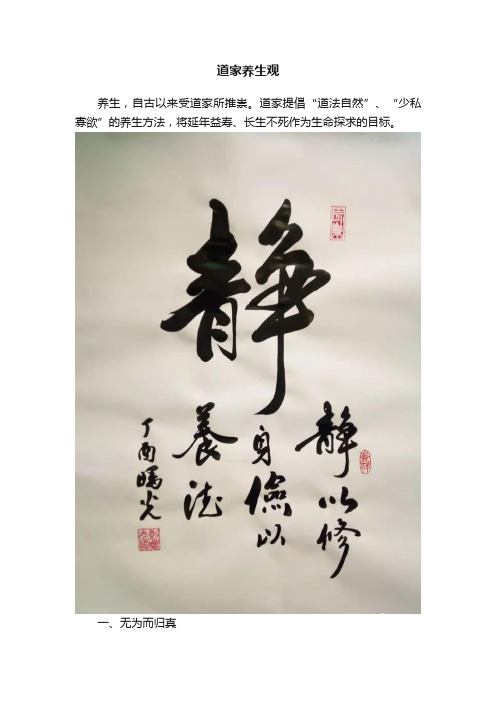 道家养生观
养生，自古以来受道家所推祟。道家提倡“道法自然”、“少私
寡欲”的养生方法，将延年益寿、长生不死作为生命探求的目标。
静
静以修
身儉以
養德
丁酉曙光
一、无为而归真